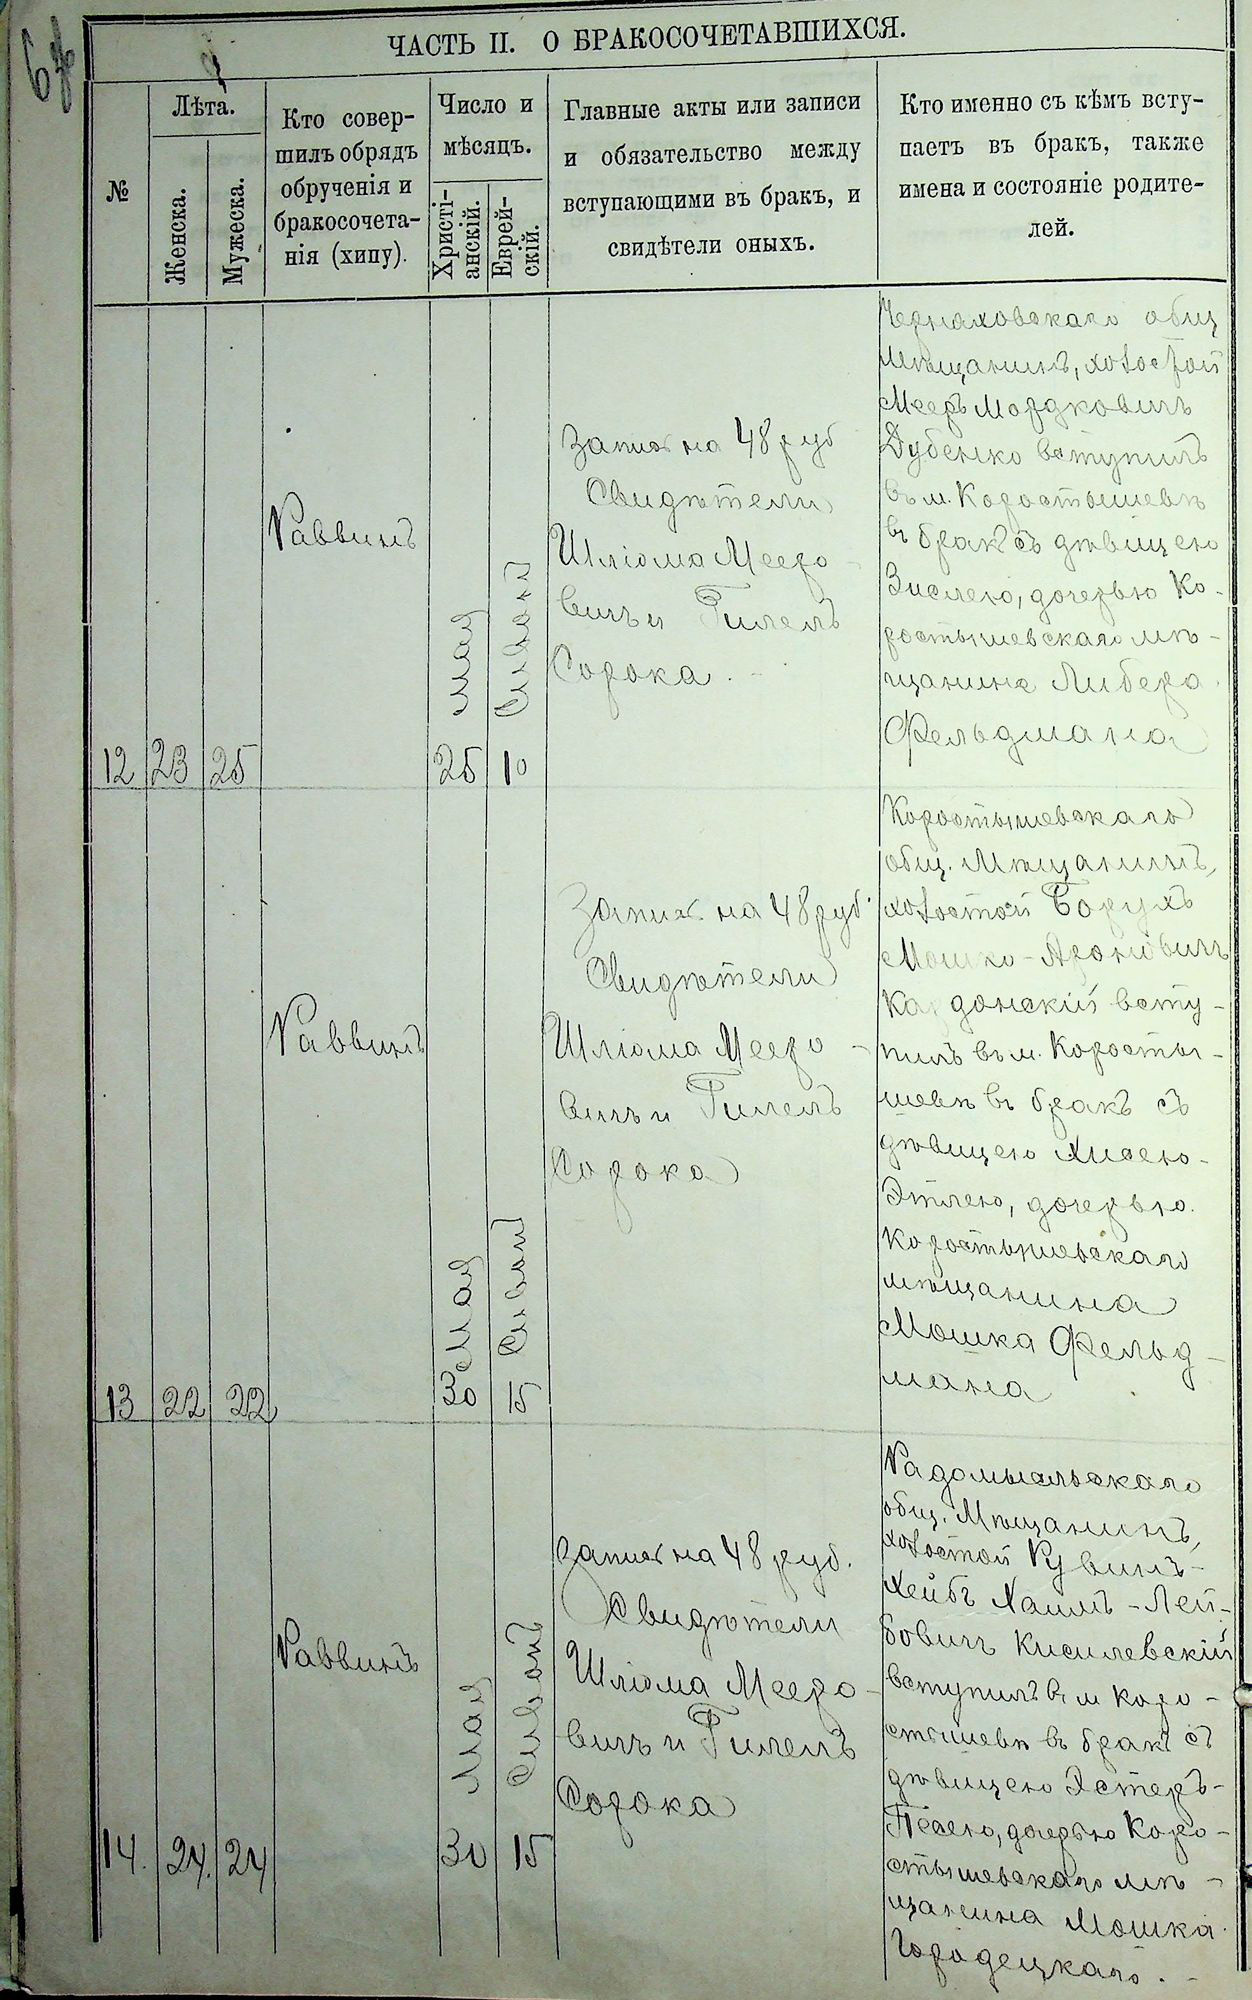 ЧАСТЬ II. О БРАКОСОЧЕТАВШИХСЯ.
№
Лѣта.
Женска.
Мужеска.
Кто совер-
шилъ обрядъ
обрученія и
бракосочета-
нія (хипу).
Число и
мѣсяцъ.
Христі-
анскій.
Еврей-
скій.
Главные акты или записи
и обязательство между
вступающими въ бракъ, и
свидѣтели оныхъ.
Кто именно съ кѣмъ всту-
паетъ въ бракъ, также
имена и состояніе родите-
лей.
12
23
25
Раввинъ
Мая
25
Сивонъ
10
Запись на 48 руб
Свидѣтели
Шліома Мееро-
вичъ и Гилелъ
Сорока.
Черняховскаго общ
мѣщанинъ, холостой
Мееръ Мордковичъ
Дубенко вступилъ
въ м. Коростышевѣ
въ бракъ съ дѣвицею
Зислею, дочерью Ко-
ростышевскаго мѣ-
щанина Либера
Фельдмана
13
22
22
Раввинъ
Мая
30
Сивонъ
15
Запись на 48 руб.
Свидѣтели
Шліома Мееро-
вичъ и Гилелъ
Сорока
Коростышевскаго
общ. Мѣщанинъ,
холостой Борухъ
Мошко-Ароновичъ
донскій всту-
пилъ въ м. Коросты-
шевѣ въ бракъ съ
дѣвицею Хисею-
Этлею, дочерью
Коростышевскаго
мѣщанина
Мошка Фельд-
мана
14.
24.
24
Раввинъ
Мая
30
Сивонъ
15
Запись на 48 руб.
Свидѣтели
Шліома Мееро-
вичъ и Гилелъ
Сорока
Радомысльскаго
общ. Мѣщанинъ,
холостой Рувинъ-
Лейбъ Хаимъ-Лей-
бовичъ Киселевскій
вступилъ въ м Коро-
стышевѣ въ бракъ съ
дѣвицею Эстеръ-
Песею, дочерью Коро-
стышевскаго мѣ-
щанина Мошка
Городецкаго.